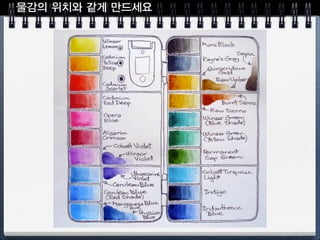 물감의 위치와 같게 만드세요
Winsor
Lemon
Cadmium
Yellow
Deep
Cadmium
Scarlet
Cadmium
Red Deep
Opera
Rose
Alizarin
Crimson
Cobalt Violet
Winsor
Violet
Ultramarine
Violet
Cerulean Blue
Cerulean Blue
(Red Shade)
Manganese Blue
Prussian
Blue
Mars Black
Sepia
Payne's Gray
Quinacridone
Gold
Raw Umber
Burnt Sienna
Raw Sienna
Winsor Green
(Blue Shade)
Winsor Green
(Yellow Shade)
Permanent
Sap Green
Cobalt Turquoise
Light
Indigo
Indanthrene
Blue